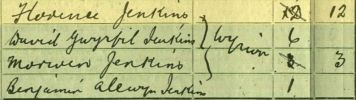 Florence Jenkins 12 12
David Gwyrfil Jenkins } Wyrion 6
Morwen Jenkins 3 3
Benjamin Alewyn Jenkins 1